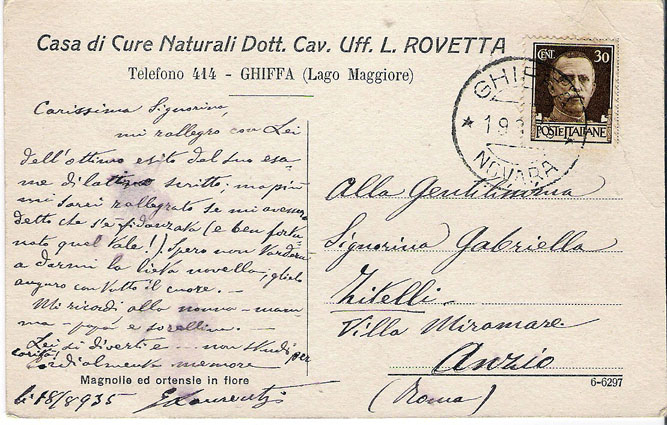 Casa di Cure Naturali Dott. Cav. Uff. L. ROVETTA
Telefono 414 - GHIFFA (Lago Maggiore)
CENT. 30
POSTE ITALIANE
GHIFFA
19
NOVARA
Carissima Signorina,
mi rallegro con Lei
dell'ottimo esito del suo esa-
me di latino scritto; ma più
mi sarei rallegrato se mi avessero
detto che s'è fidanzata (e ben fortu-
nato quel tale!). Spero non tarderà
a darmi la lieta novella, glielo
auguro con tutto il cuore. -
Mi ricordi alla nonna - mam-
ma - papà e sorellina. -
Lei si diverta e non studi per
carità!
Cordialmente memore
Magnolie ed ortensie in fiore
li 18/8935
Alla Gentilissima
Signorina Gabriella
Zitelli -
Villa Miramare
Anzio
(Roma)
6-6297